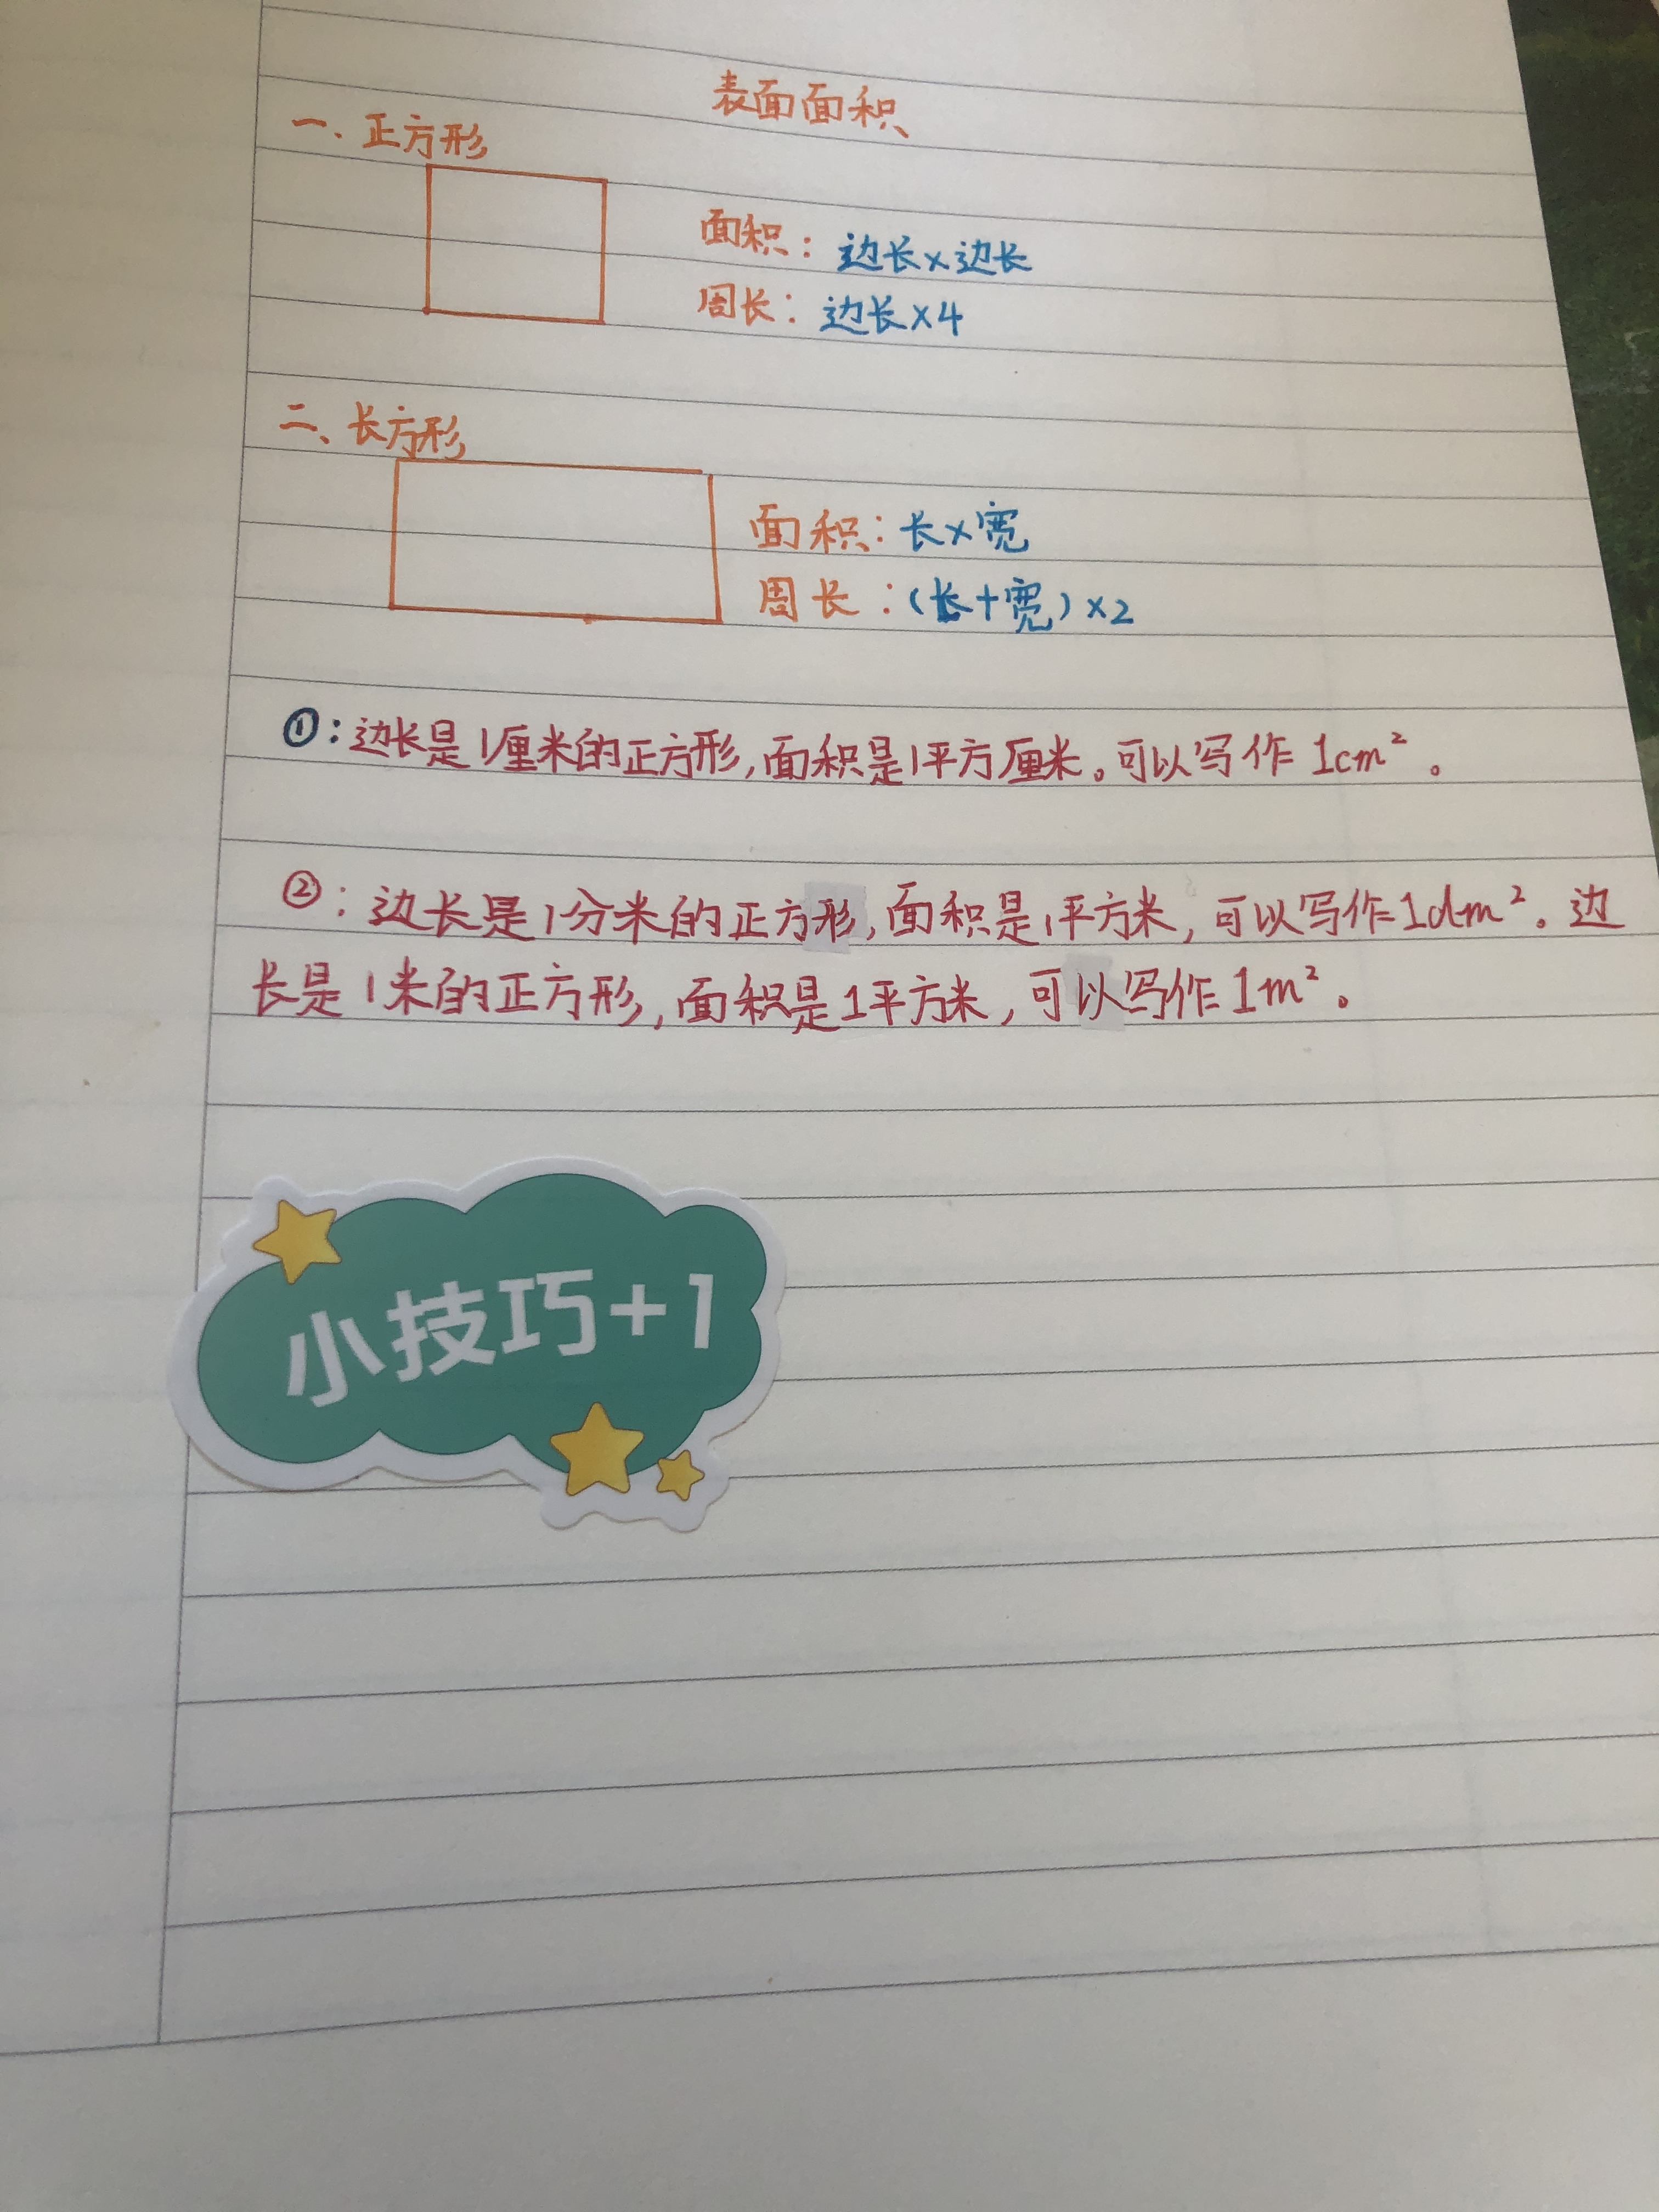 表面面积
一、正方形
面积：边长×边长
周长：边长×4
二、长方形
面积：长×宽
周长：(长+宽)×2
①：边长是1厘米的正方形,面积是1平方厘米。可以写作 1cm²。
②：边长是1分米的正方形,面积是1平方米,可以写作1dm²。边
长是1米的正方形,面积是1平方米,可以写作1m²。
小技巧+1